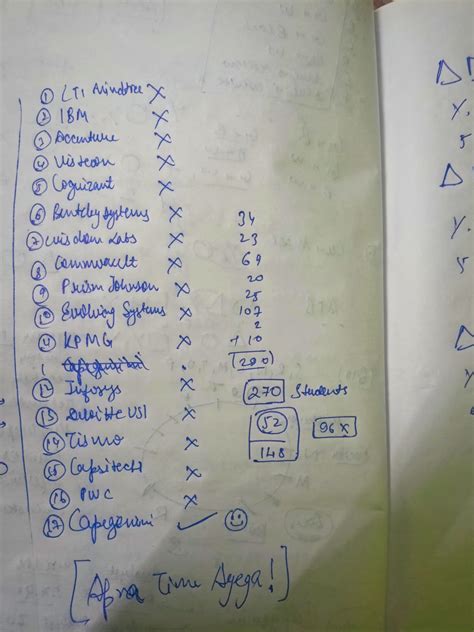 ① LTI Mindtree X
② IBM X
③ Accenture X
④ Visteon X
⑤ Cognizant X
⑥ Bentley systems X 34
⑦ Wisdom Labs X 23
⑧ Commvault X 69
⑨ Prism Johnson X 20
25
⑩ Evolving Systems X 107
2
⑪ KPMG X + 10
1 Capgemini . (290)
⑫ Infosys X 270 Students
⑬ Deloitte USI X 52 96 X
⑭ Tismo X 148
⑮ Capsitech X
⑯ PWC X
⑰ Capegemini ✓ ☺
[Apna Time Ayega!]
Y.
5
Y.
5
Y.
5